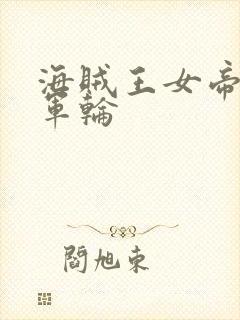 海賊王女帝
軍輪
閻旭東